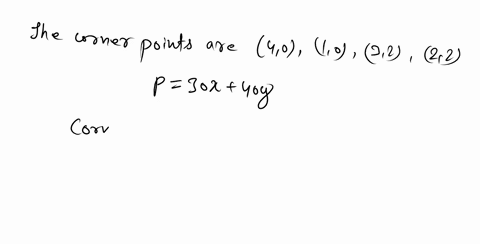 The corner points are (4,0), (1,0), (3,2), (2,2)
P = 30x + 40y
Corr